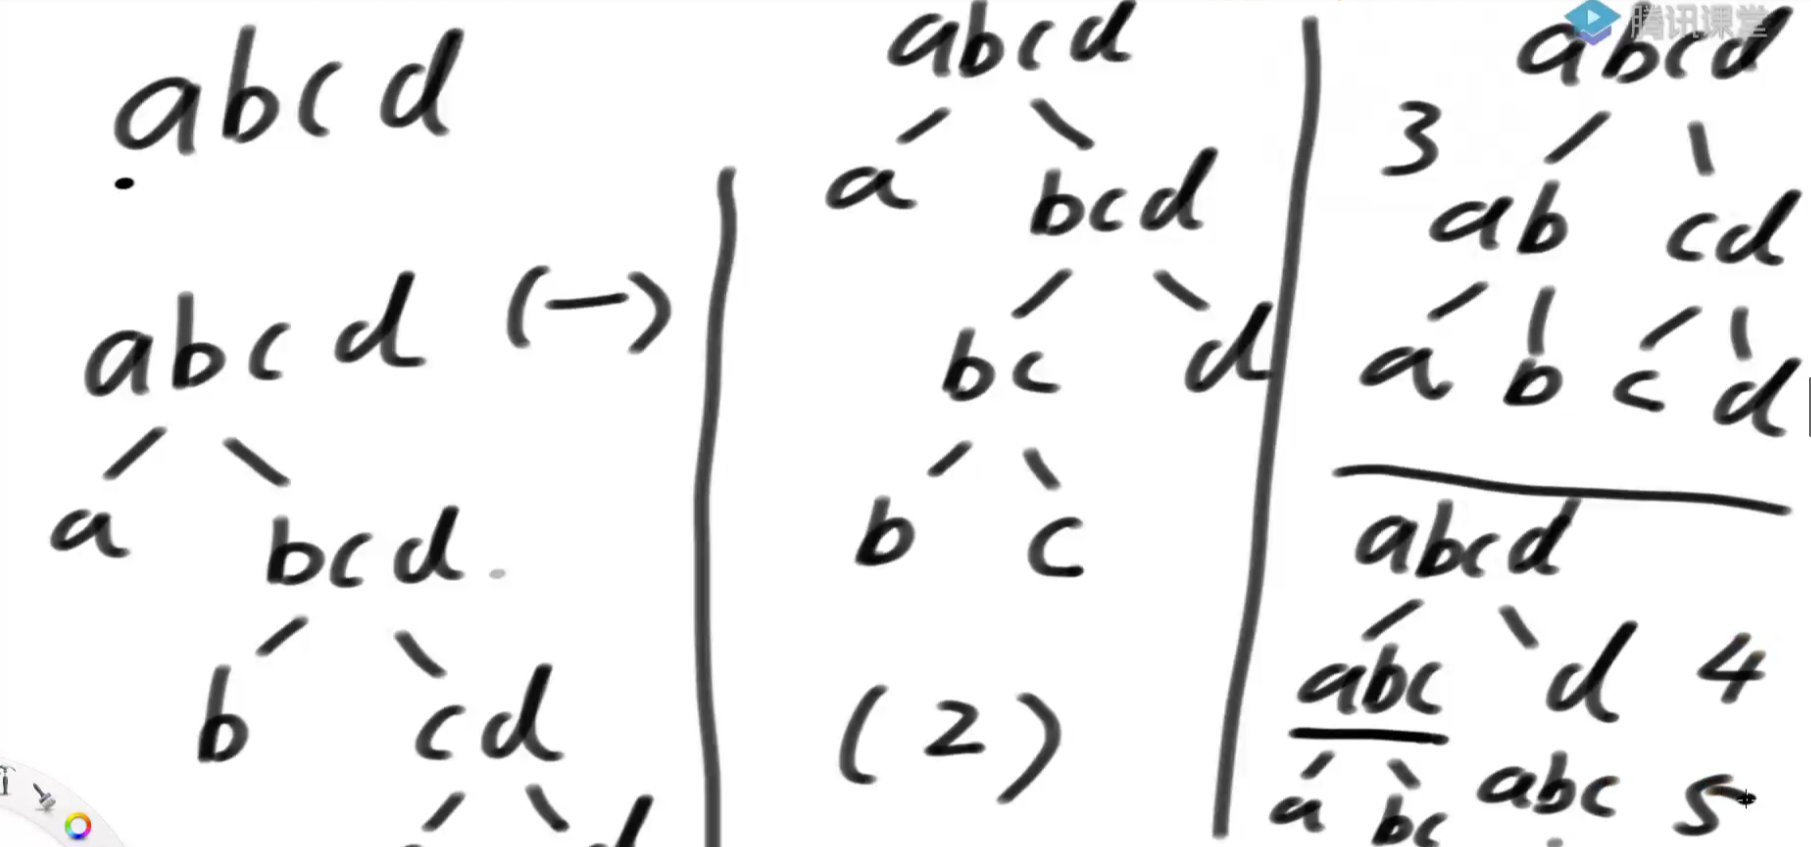 abcd
abcd (一)
a bcd
b cd
d
abcd
a bcd
bc d
b c
(2)
腾讯课堂
abcd
3
ab cd
a b c d
abcd
abc d 4
a bc abc 5